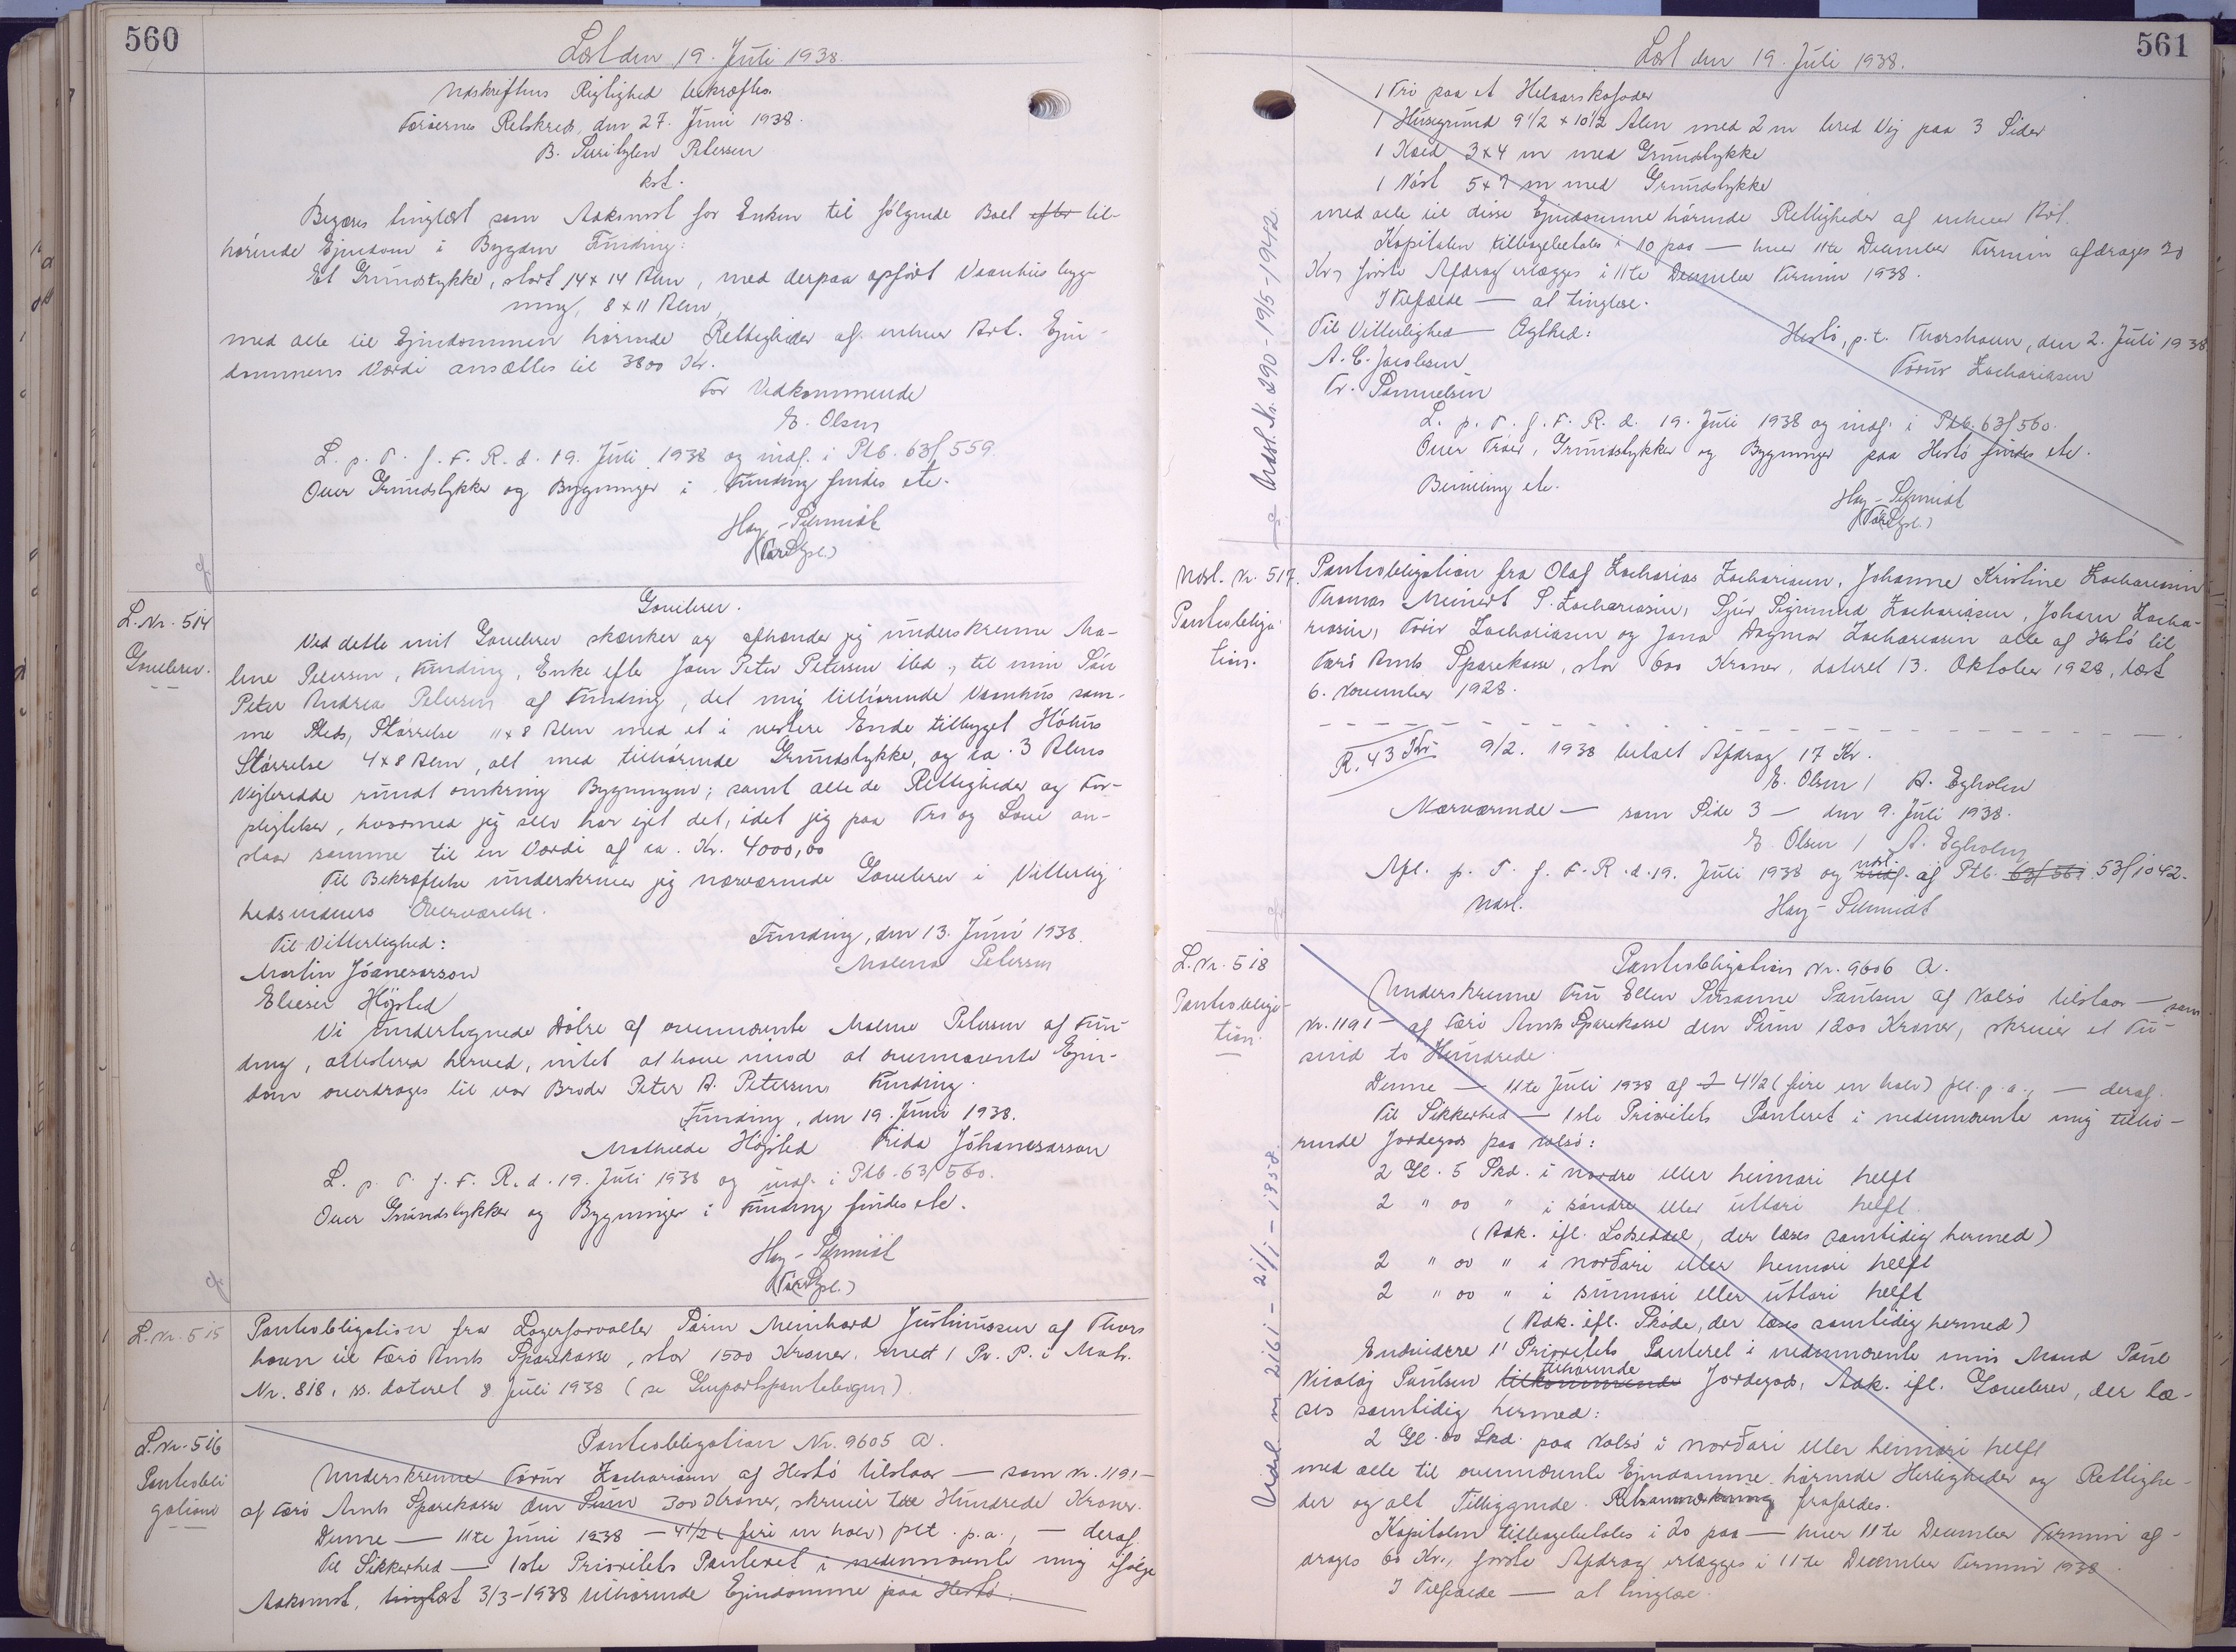 560
Læst den 19. Juli 1938.
Udskriftens Rigtighed bekræftes.
Færøernes Retskreds, den 27. Juni 1938.
B. Petersen
kst.
Begæres tinglæst som Adkomst for Enken til følgende Boet efter til-
hørende Ejendom i Bygden Funding:
Et Grundstykke, stort 14 x 14 Alen, med derpaa opført Vaanhus byg-
ning, 8 x 11 Alen,
med alle til Ejendommen hørende Rettigheder af enhver Art. Ejen-
dommens Værdi ansættes til 3800 Kr.
For Vedkommende
E. Olsen
L. p. T. f. F. R. d. 19. Juli 1938 og indf. i Ptb. 63/559.
Over Grundstykke og Bygninger i Funding findes etc.
Hay-Schmidt
L. Nr. 514
Gavebrev.
Gavebrev.
Ved dette mit Gavebrev skænker og afhænder jeg underskrevne Ma-
lene Petersen, Funding, Enke efter Joen Peter Petersen ibd., til min Søn
Peter Andrea Petersen af Funding, det mig tilhørende Vaanhus sam-
me Steds, Størrelse 11 x 8 Alen med et i vestere Ende tilbygget Høhus
Størrelse 4 x 8 Alen, alt med tilhørende Grundstykke, og ca. 3 Alens
Vejbredde rundt omkring Bygningen; samt alle de Rettigheder og For-
pligtelser, hvormed jeg selv har ejet det, idet jeg paa Tro og Love an-
slaar samme til en Værdi af ca. Kr. 4000,00
Til Bekræftelse underskriver jeg nærværende Gavebrev i Vitterlig-
hedsvidners Overværelse.
Til Vitterlighed:
Funding, den 13. Juni 1938.
Malena Petersen
Martin Jóanesarson
Elieser Højsted
Vi undertegnede Døtre af ovennævnte Malene Petersen af Fun-
ding, attesterer herved, intet at have imod at ovennævnte Ejen-
dom overdrages til vor Broder Peter A. Petersen Funding.
Funding, den 19. Juni 1938.
Mathilde Højsted Frida Jóhanesarson
L. p. T. f. F. R. d. 19. Juli 1938 og indf. i Ptb. 63/560.
Over Grundstykker og Bygninger i Funding findes etc.
Hay-Schmidt
L. Nr. 515
Pantobligation fra Lagerforvalter Meinhard Justinussen af Thors
havn til Færø Amts Sparekasse, stor 1500 Kroner, med 1 Pr. P. i Matr.
Nr. 818, ss. dateret 8 Juli 1938 (se Genpartspantebogen).
L. Nr. 516
Pantobli
gation
Pantobligation Nr. 9605 A.
Underskrevne Tórur Zachariasen af Hestø tilstaar — som Nr. 1191 —
af Færø Amts Sparekasse den Sum 300 Kroner, skriver tre Hundrede Kroner.
Denne — 11te Juni 1938 — 4 1/2 (fire en halv) pct. p.a., — deraf.
Til Sikkerhed — 1ste Prioritets Panteret i nedennævnte mig ifølge
Adkomst, tinglæst 3/3-1938 tilhørende Ejendomme paa Hestø:
561
Læst den 19. Juli 1938.
1 Tri paa et Helaarskofoder
1 Husegrund 9 1/2 x 10 1/2 Alen med 2 m bred Vej paa 3 Sider
1 3x4 m med Grundstykke
1 Nóst 5x7 m med Grundstykke
med alle til disse Ejendomme hørende Rettigheder af enhver Art.
Kapitalen tilbagebetales i 10 paa — hver 11te December Termin afdrages 30
Kr., første Afdrag erlægges i 11te December Termin 1938.
I Tilfælde — at tinglæse.
Til Vitterlighed — Ægthed:
Hestø, p.t. Thorshavn, den 2. Juli 1938
Tórur Zachariasen
A. C. Jacobsen
Fr. Samuelsen
L. p. T. f. F. R. d. 19. Juli 1938 og indf. i Ptb. 63/560.
Over Trier, Grundstykker og Bygninger paa Hestø findes etc.
etc.
Hay-Schmidt
Udsl. Nr. 290 - 19/5 - 1942.
Udsl. Nr. 517.
Pantobliga-
tion.
Pantobligation fra Olaf Zacharias Zachariasen, Johanne Kristine Zachariasen
Thomas Meinert S. Zachariasen, Sjúr Sigmund Zachariasen, Johann Zacha-
riasen, Tórur Zachariasen og Jona Dagmar Zachariasen alle af Hestø til
Færø Amts Sparekasse, stor 600 Kroner, dateret 13. Oktober 1928, læst
6. November 1928.
R. 43 Kr. 9/2. 1938 betalt Afdrag 17 Kr.
E. Olsen / A. Egholm
Nærværende — som Side 3 — den 9. Juli 1938.
E. Olsen / A. Egholm
Afl. p. T. f. F. R. d. 19. Juli 1938 og indf. udsl. af Ptb. 63/561 53/1042.
Udsl.
Hay-Schmidt
L. Nr. 518
Pantobliga-
tion.
Pantobligation Nr. 9606 A.
Underskrevne Fru Ellen Susanne Paulsen af Kolsø tilstaar — som
Nr. 1191 — af Færø Amts Sparekasse den Sum 1200 Kroner, skriver et Tu-
sind to Hundrede.
Denne — 11te Juli 1938 af 4 1/2 (fire en halv) pct. p.a., — deraf.
Til Sikkerhed — 1ste Prioritets Panteret i nedennævnte mig tilhø-
rende Jordegods paa Kolsø:
2 Gl. 5 Skd. i nordre eller heimari helft
2 " 00 " i søndre eller úttari helft
(Adk. ifl. Lodseddel, der læses samtidig hermed)
2 " 00 " i norðari eller heimari helft
2 " 00 " i sunnari eller úttari helft
(Adk. ifl. Skøde, der læses samtidig hermed)
Endvidere 1' Prioritets Panteret i nedennævnte min Mand Poul
Nicolaj Paulsen tilkommende tilhørende Jordegods, Adk. ifl. Gavebrev, der læ-
ses samtidig hermed:
2 Gl. 00 Skd. paa Kolsø i norðari eller heimari helft
med alle til ovennævnte Ejendomme hørende Herligheder og Rettighe-
der og alt Tilliggende. Retsanmærkning frafaldes.
Kapitalen tilbagebetales i 20 paa — hver 11te December Termin af-
drages 60 Kr., første Afdrag erlægges i 11te December Termin 1938.
I Tilfælde — at tinglæse.
Udsl. Nr. 2161 - 21/1 - 1958.